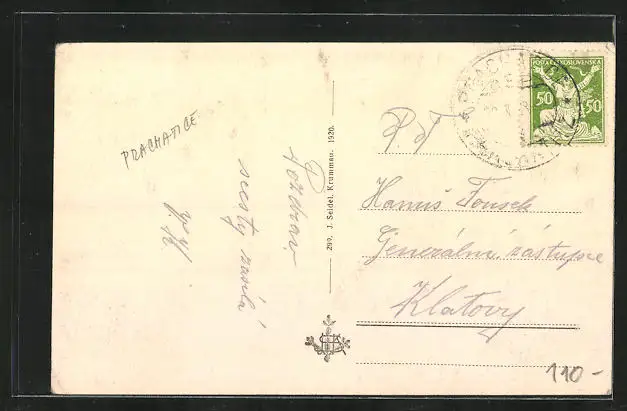 PRACHATICE
Pozdrav
z cesty zasílá
299. J. Seidel, Krummau. 1920.
POŠTA ČESKOSLOVENSKÁ
50 50
P. T.
Hanuš Fousek
Generální zástupce
Klatovy
110-